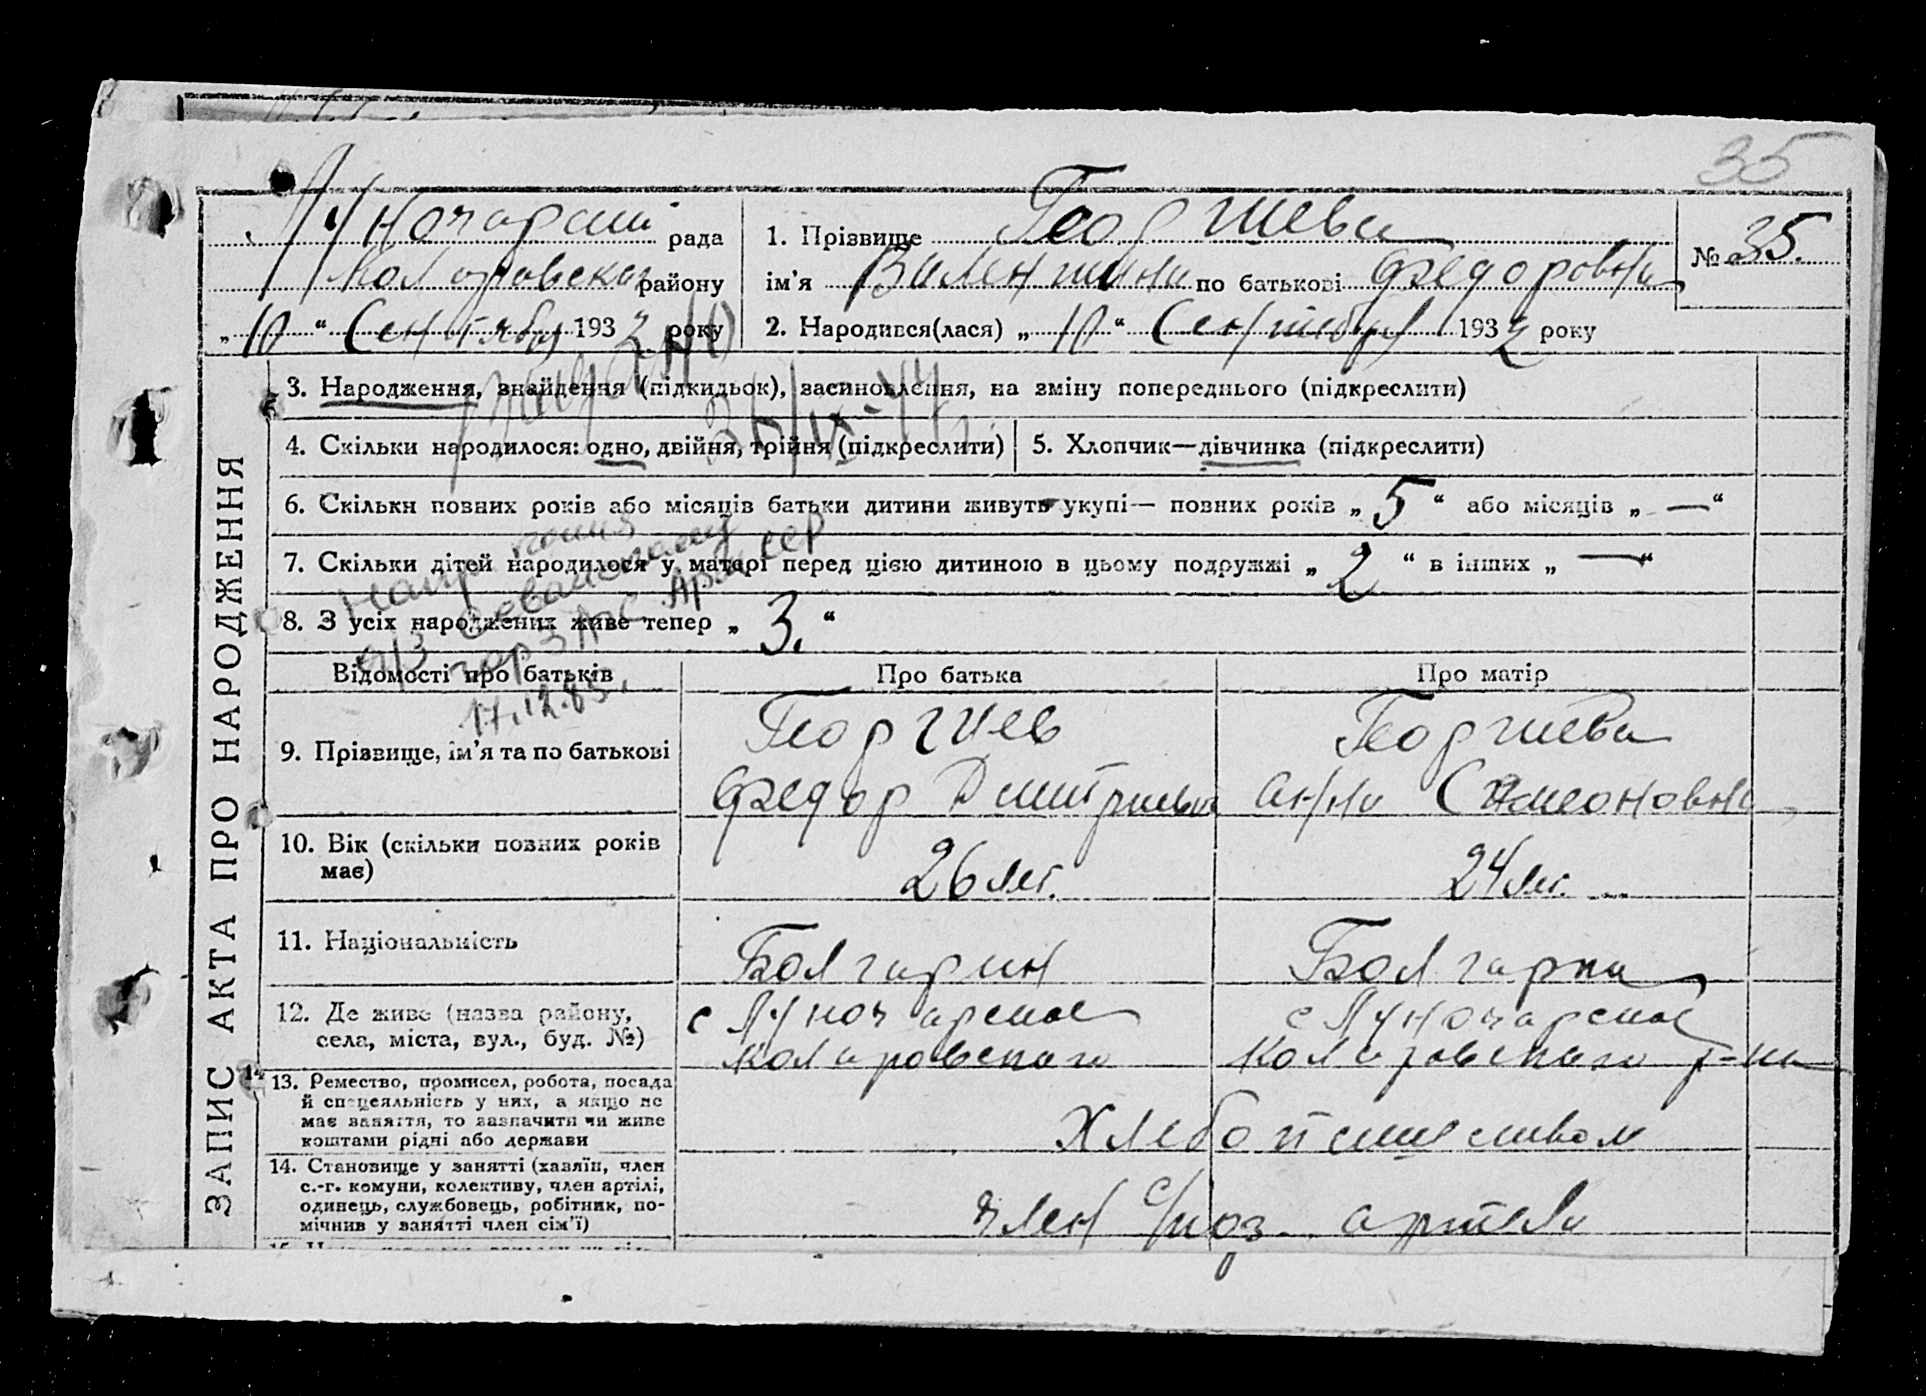 35
Луначарский рада
Коларовского району
„ 10 “ Сентября 1932 року
1. Прізвище Георгиева
ім'я Валентина по батькові Федоровна
№ 35.
2. Народився(лася) „ 10 “ Сентября 1932 року
3. Народження, знайдення (підкидьок), васиновлення, на зміну попереднього (підкреслити)
26/IX-47
4. Скільки народилося: одно, двійня, трійня (підкреслити) 5. Хлопчик—дівчинка (підкреслити)
6. Скільки повних років або місяців батьки дитини живуть укупі— повних років „ 5 “ або місяців „ — “
7. Скільки дітей народилося у матері перед цією дитиною в цьому подружжі „ 2 “ в інших „ — “
8. З усіх народжених живе тепер „ 3. “
Напр
горЗАГС Арм ССР
17.12.85.
ЗАПИС АКТА ПРО НАРОДЖЕННЯ
Відомості про батьків Про батька Про матір
9. Прізвище, ім'я та по батькові
Георгиев
Федор Дмитриевич
Георгиева
Анна Симеоновна
10. Вік (скільки повних років
має)
26 лет. 24 лет.
11. Національність Болгарин Болгарка
12. Де живе (назва району,
села, міста, вул., буд. №)
с Луначарское
Коларовского
с Луначарское
Коларовского р-на
13. Ремество, промисел, робота, посада
й спецеяльність у них, а якщо не
має заняття, то зазначити чи живе
коштами рідні або держави
Хлебопашеством
14. Становище у занятті (хазяїн, член
с.-г. комуни, колективу, член артілі,
одинець, службовець, робітник, по-
мічник у занятті член сім'ї)
член с/хоз. артели